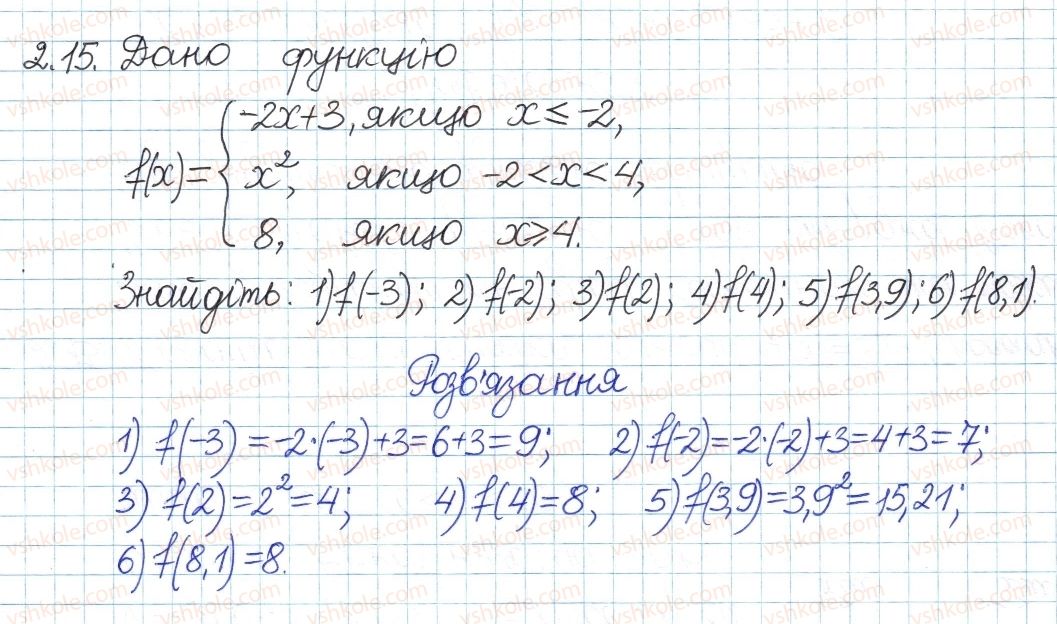 2.15. Дано функцію
f(x)= { -2x+3, якщо x≤-2,
x², якщо -2<x<4,
8, якщо x≥4.
Знайдіть: 1) f(-3); 2) f(-2); 3) f(2); 4) f(4); 5) f(3,9); 6) f(8,1).
Розв'язання
1) f(-3) = -2·(-3)+3=6+3=9; 2) f(-2)=-2·(-2)+3=4+3=7;
3) f(2)=2²=4; 4) f(4)=8; 5) f(3,9)=3,9²=15,21;
6) f(8,1)=8.